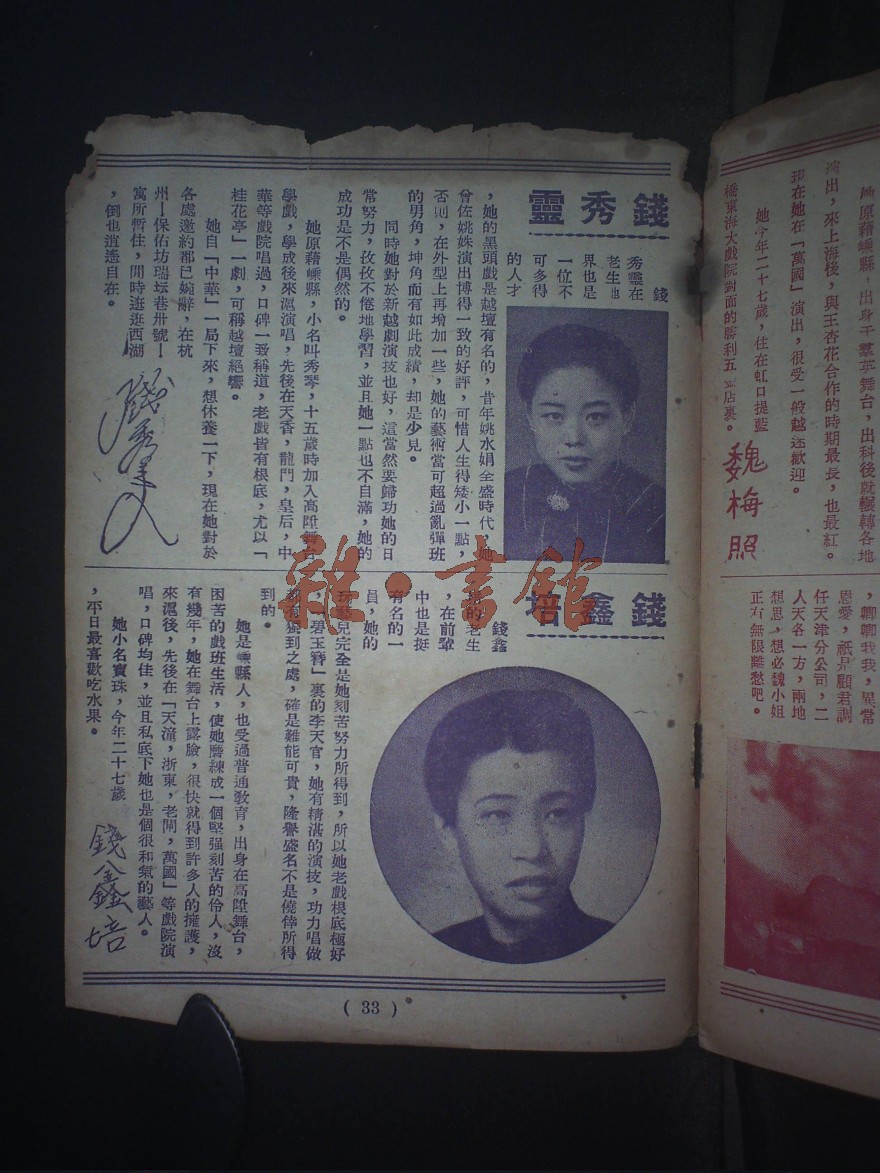 她原藉嵊縣，出身于羣英舞台，出科後就輾轉各地
演出，來上海後，與王杏花合作的時期最長，也最紅。
現在她在「萬國」演出，很受一般越迷歡迎。
她今年二十七歲，住在虹口提藍
橋東海大戲院對面的勝利五金店裏。
魏梅照
，卿卿我我，異常
恩愛，祇是顧君調
任天津分公司，二
人天各一方，兩地
想思，想必魏小姐
正有無限離愁吧。
錢秀靈
錢
秀靈在
老生地
界也是
一位不
可多得
的人才
，她的黑頭戲是越壇有名的，昔年姚水娟全盛時代，她
曾佐姚姝演出博得一致的好評，可惜人生得矮小一點，
否則，在外型上再增加一些，她的藝術當可超過亂彈班
的男角，坤角而有如此成績，却是少見。
同時她對於新越劇演技也好，這當然要歸功她的日
常努力，孜孜不倦地學習，並且她一點也不自滿，她的
成功是不是偶然的。
她原藉嵊縣，小名叫秀琴，十五歲時加入高陞舞台
學戲，學成後來滬演唱，先後在天香，龍門，皇后，中
華等戲院唱過，口碑一致稱道，老戲皆有根底，尤以「
桂花亭」一劇，可稱越壇絕響。
她自「中華」一局下來，想休養一下，現在她對於
各處邀約都已婉辭，在杭
州—保佑坊瑞坛巷卅號—
寓所暫住，閒時逛逛西湖
，倒也逍遙自在。
錢鑫培
錢鑫
培的老生
，在前輩
中也是挺
有名的一
員，她的
玩藝兒完全是她刻苦努力所得到，所以她老戲根底極好
，「碧玉簪」裏的李天官，她有精湛的演技，功力唱做
都有獨到之處，確是難能可貴，隆譽盛名不是僥倖所得
到的。
她是嵊縣人，也受過普通敎育，出身在高陞舞台，
困苦的戲班生活，使她磨練成一個堅强刻苦的伶人，沒
有幾年，她在舞台上露臉，很快就得到許多人的擁護，
來滬後，先後在「天潼，浙東，老閘，萬國」等戲院演
唱，口碑均佳，並且私底下她也是個很和氣的藝人。
她小名寶珠，今年二十七歲
，平日最喜歡吃水果。
錢鑫培
( 33 )
雜·書館